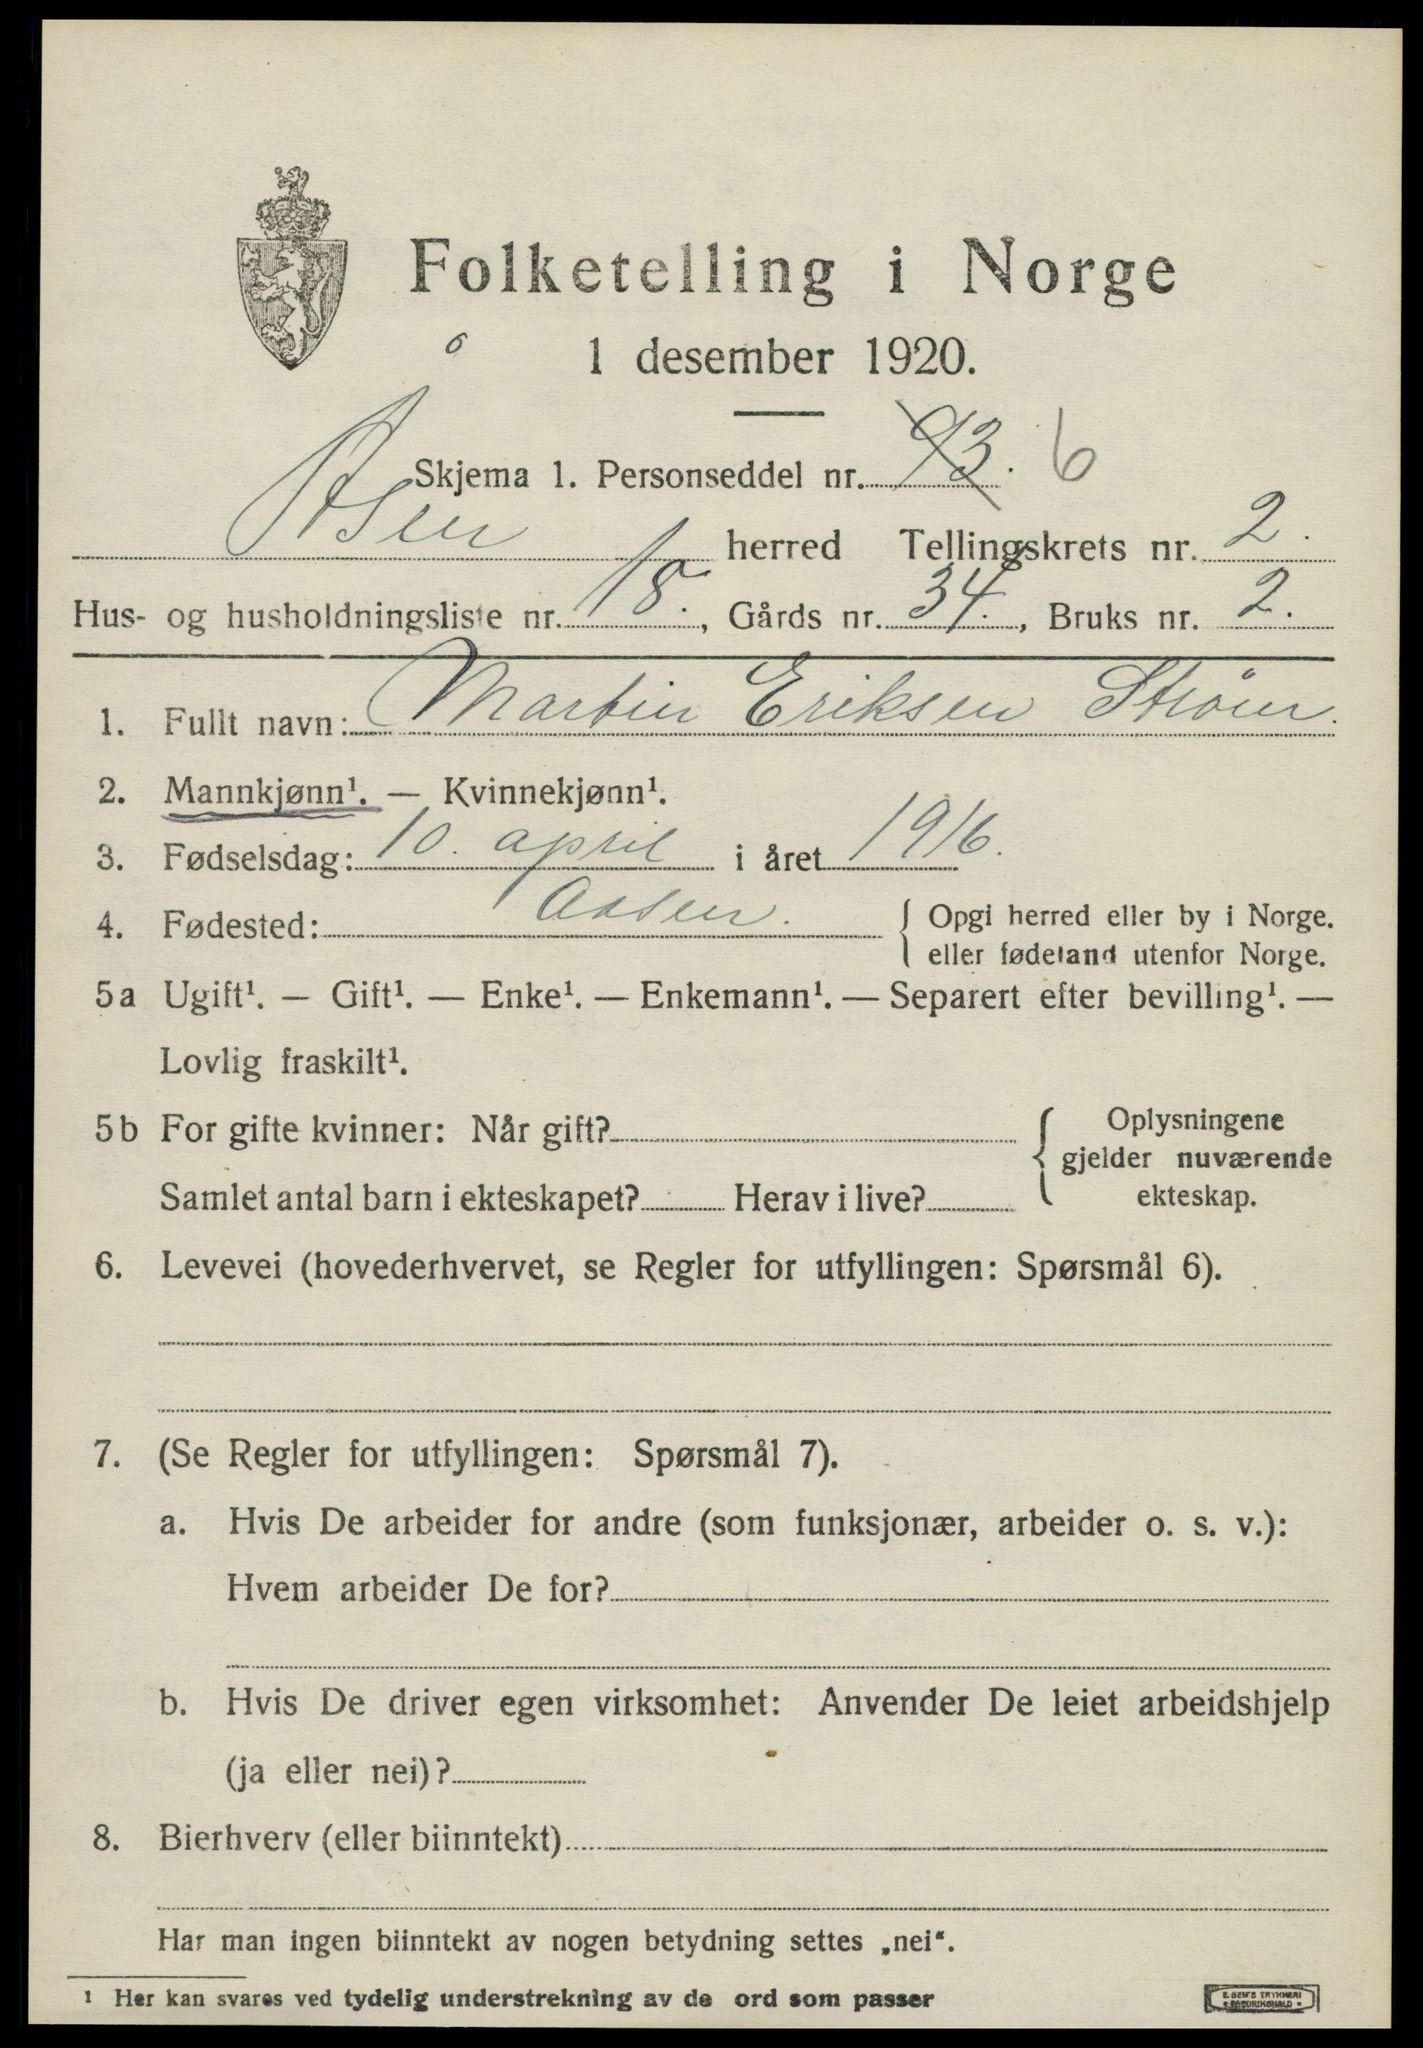 Folketelling i Norge
1 desember 1920.
Skjema 1. Personseddel nr. 93. 6
Åsen herred Tellingskrets nr. 2.
Hus- og husholdningsliste nr. 18., Gårds nr. 34., Bruks nr. 2.
1. Fullt navn: Martin Eriksen Strøm.
2. Mannkjønn¹. — Kvinnekjønn¹.
3. Fødselsdag: 10. april i året 1916.
4. Fødested: Aasen. { Opgi herred eller by i Norge.
eller fødeland utenfor Norge.
5a Ugift¹. — Gift¹. — Enke¹. — Enkemann¹. — Separert efter bevilling¹. —
Lovlig fraskilt¹.
5b For gifte kvinner: Når gift?
Samlet antal barn i ekteskapet? Herav i live?
{ Oplysningene
gjelder nuværende
ekteskap.
6. Levevei (hovederhvervet, se Regler for utfyllingen: Spørsmål 6).
7. (Se Regler for utfyllingen: Spørsmål 7).
a. Hvis De arbeider for andre (som funksjonær, arbeider o. s. v.):
Hvem arbeider De for?
b. Hvis De driver egen virksomhet: Anvender De leiet arbeidshjelp
(ja eller nei)?
8. Bierhverv (eller biinntekt)
Har man ingen biinntekt av nogen betydning settes „nei“.
¹ Her kan svares ved tydelig understrekning av de ord som passer
E. SEM'S TRYKKERI
FREDRIKSHALD